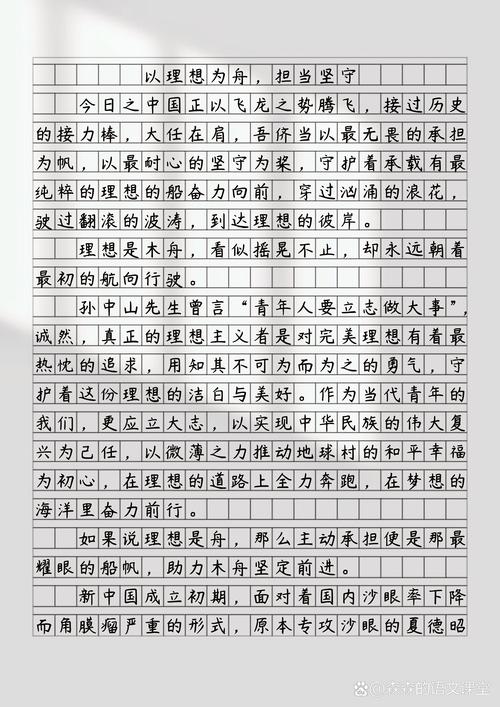 以理想为舟，担当坚守
今日之中国正以飞龙之势腾飞，接过历史
的接力棒，大任在肩，吾侪当以最无畏的承担
为帆，以最耐心的坚守为桨，守护着承载有最
纯粹的理想的船奋力向前，穿过汹涌的浪花，
驶过翻滚的波涛，到达理想的彼岸。
理想是木舟，看似摇晃不止，却永远朝着
最初的航向行驶。
孙中山先生曾言“青年人要立志做大事”，
诚然，真正的理想主义者是对完美理想有着最
热忱的追求，用知其不可为而为之的勇气，守
护着这份理想的洁白与美好。作为当代青年的
我们，更应立大志，以实现中华民族的伟大复
兴为己任，以微薄之力推动地球村的和平幸福
为初心，在理想的道路上全力奔跑，在梦想的
海洋里奋力前行。
如果说理想是舟，那么主动承担便是那最
耀眼的船帆，助力木舟坚定前进。
新中国成立初期，面对着国内沙眼率下降
而角膜瘤严重的形式，原本专攻沙眼的夏德昭
森森的语文课堂